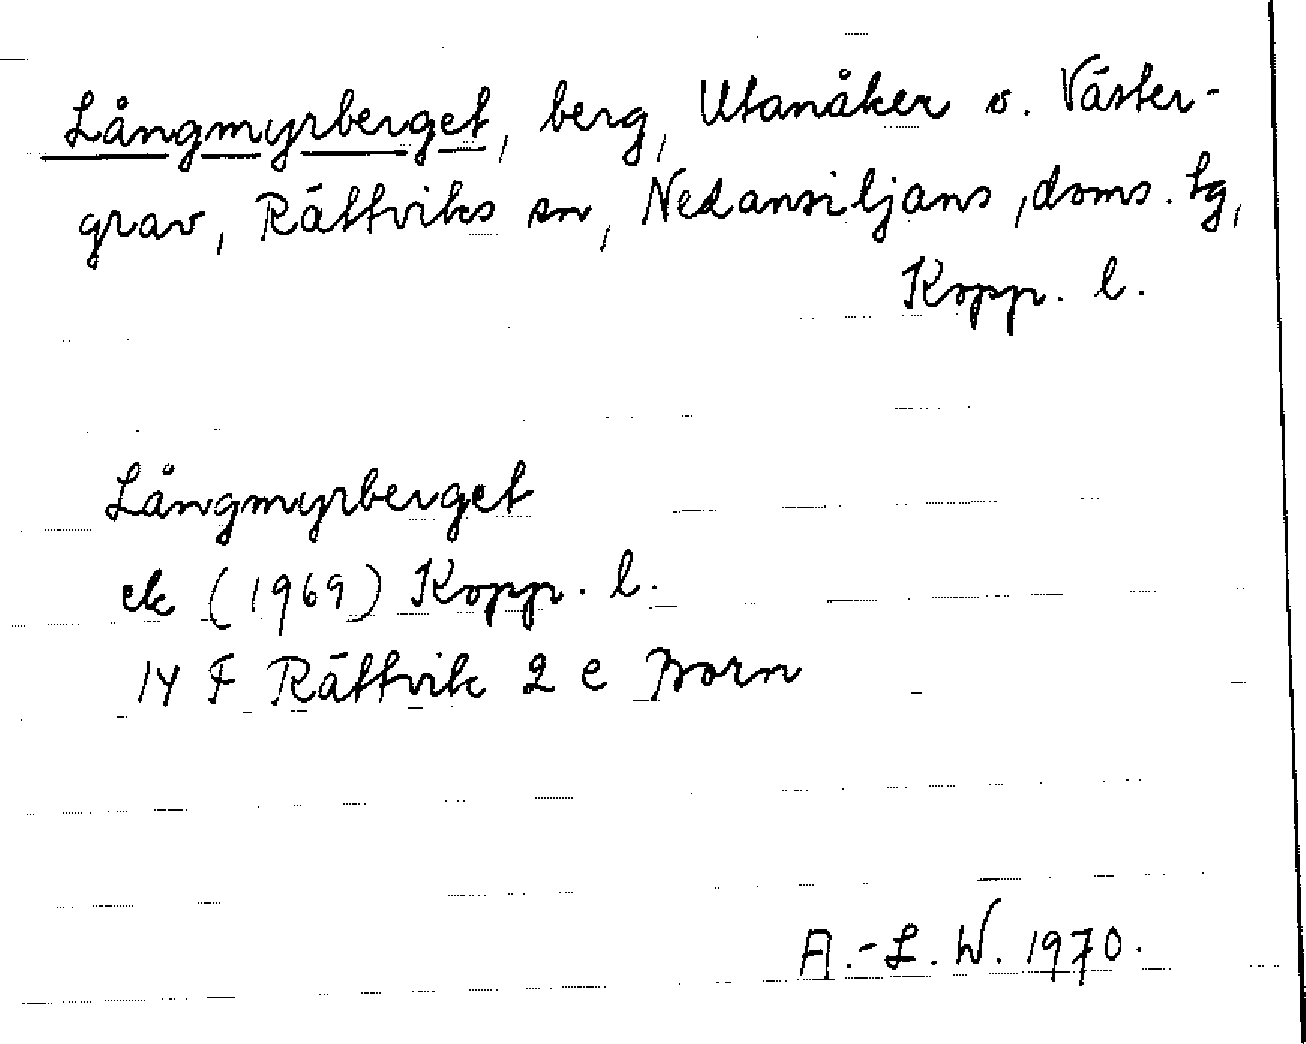 Långmyrberget, berg, Utanåker o. Väster-
grav, Rättviks sn, Nedansiljans, doms. tg,
Kopp. l.
Långmyrberget
ek (1969) Kopp. l.
14 F Rättvik 2 e Born
A.-L. W. 1970.